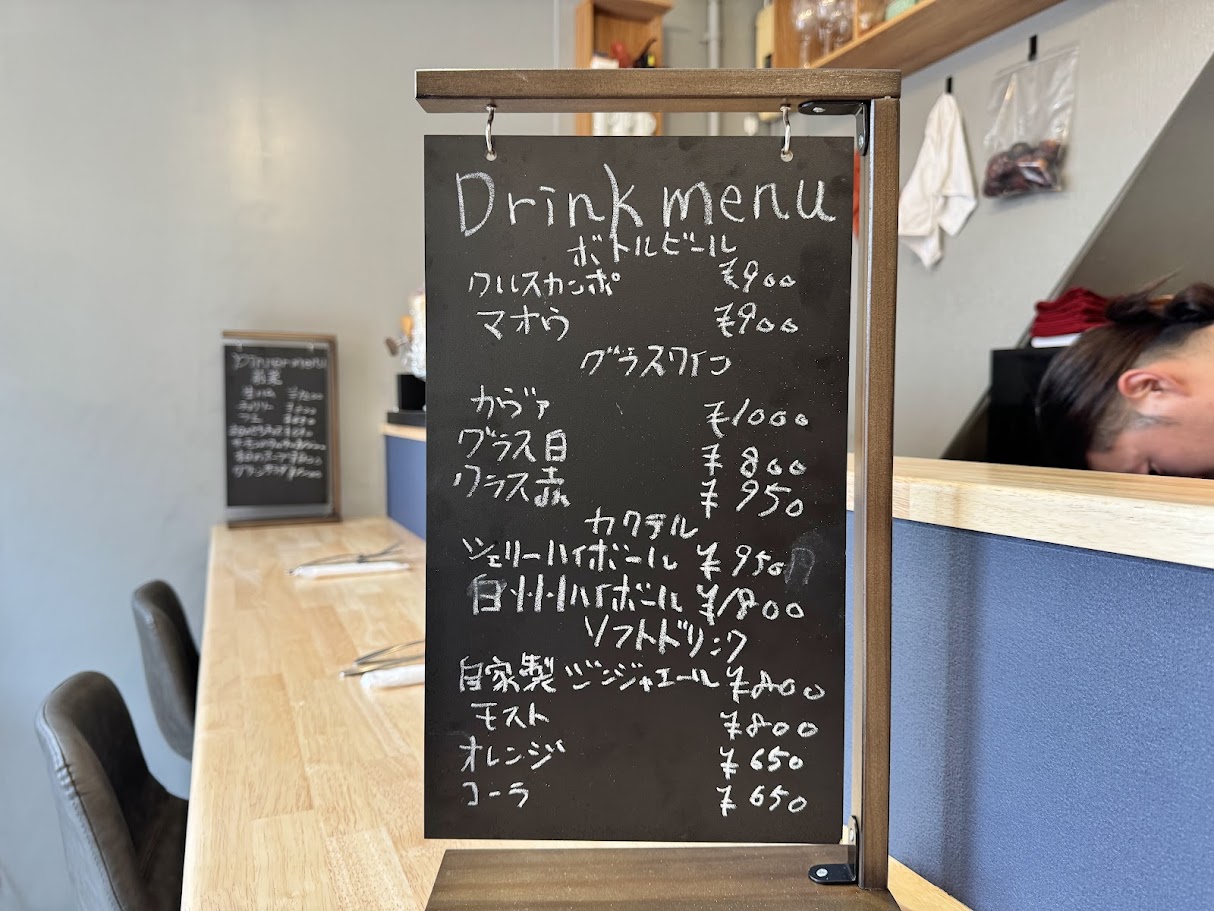 Drink menu
ボトルビール
クルスカンポ ¥900
マオウ ¥900
グラスワイン
カヴァ ¥1000
グラス白 ¥800
グラス赤 ¥950
カクテル
シェリーハイボール ¥950
白州ハイボール ¥1800
ソフトドリンク
自家製ジンジャエール ¥800
モスト ¥800
オレンジ ¥650
コーラ ¥650
Dinner menu
前菜